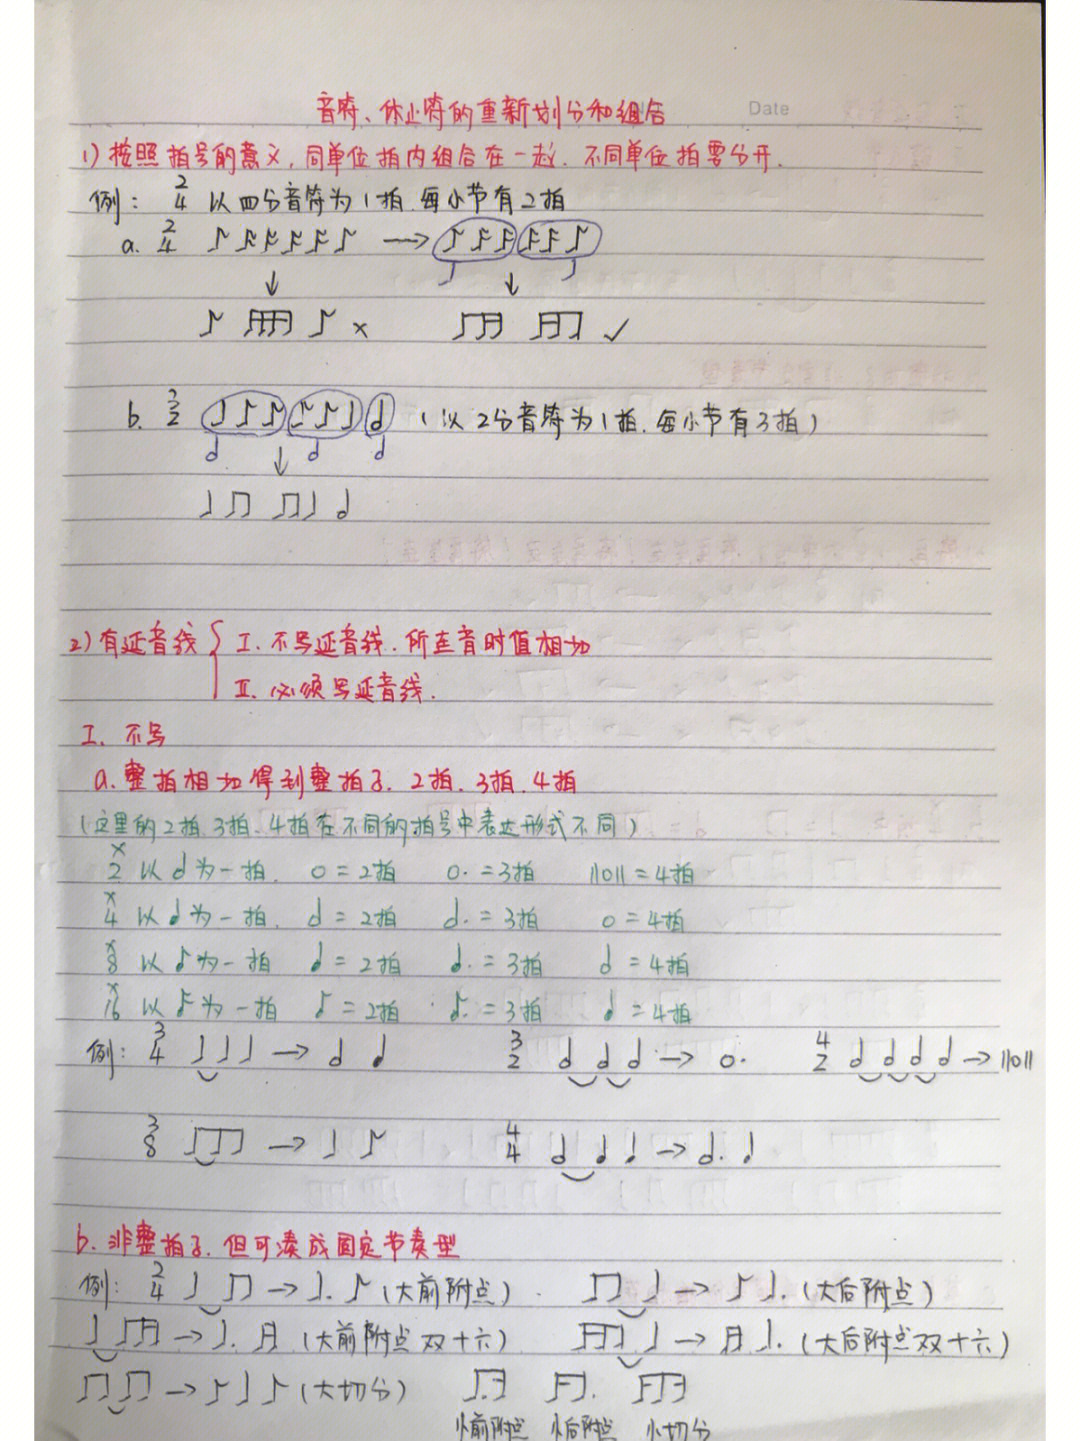 Date
音符、休止符的重新划分和组合
1) 按照拍号的意义,同单位拍内组合在一起.不同单位拍要分开.
例: 2/4 以四分音符为1拍.每小节有2拍
a. 2/4 ♪ 𝅘𝅥𝅯 𝅘𝅥𝅯 𝅘𝅥𝅯 𝅘𝅥𝅯 ♪ → ♪ 𝅘𝅥𝅯 𝅘𝅥𝅯 𝅘𝅥𝅯 𝅘𝅥𝅯 ♪
× ✓
b. 3/2 (以2分音符为1拍.每小节有3拍)
2) 有延音线 { I. 不写延音线.所连音时值相加
II. 必须写延音线.
I. 不写
a. 整拍相加得到整拍子. 2拍. 3拍. 4拍
(这里的2拍.3拍.4拍在不同的拍号中表达形式不同)
x/2 以𝅗𝅥为一拍. o = 2拍 o. = 3拍 ||o|| = 4拍
x/4 以♩为一拍. 𝅗𝅥 = 2拍 𝅗𝅥. = 3拍 o = 4拍
x/8 以♪为一拍 ♩ = 2拍 ♩. = 3拍 𝅗𝅥 = 4拍
x/16 以𝅘𝅥𝅯为一拍 ♪ = 2拍 ♪. = 3拍 ♩ = 4拍
例: 3/4 ♩ ♩ ♩ → 𝅗𝅥 ♩ 3/2 𝅗𝅥 𝅗𝅥 𝅗𝅥 → o. 4/2 𝅗𝅥 𝅗𝅥 𝅗𝅥 𝅗𝅥 → ||o||
3/8 ♫♪ → ♩ ♪ 4/4 𝅗𝅥 ♩ ♩ → 𝅗𝅥. ♩
b. 非整拍子.但可凑成固定节奏型
例: 2/4 ♩ ♫ → ♩. ♪ (大前附点) ♫ ♩ → ♪ ♩. (大后附点)
→ ♩. (大前附点双十六) → ♩. (大后附点双十六)
♫ ♫ → ♪ ♩ ♪ (大切分)
小前附点 小后附点 小切分